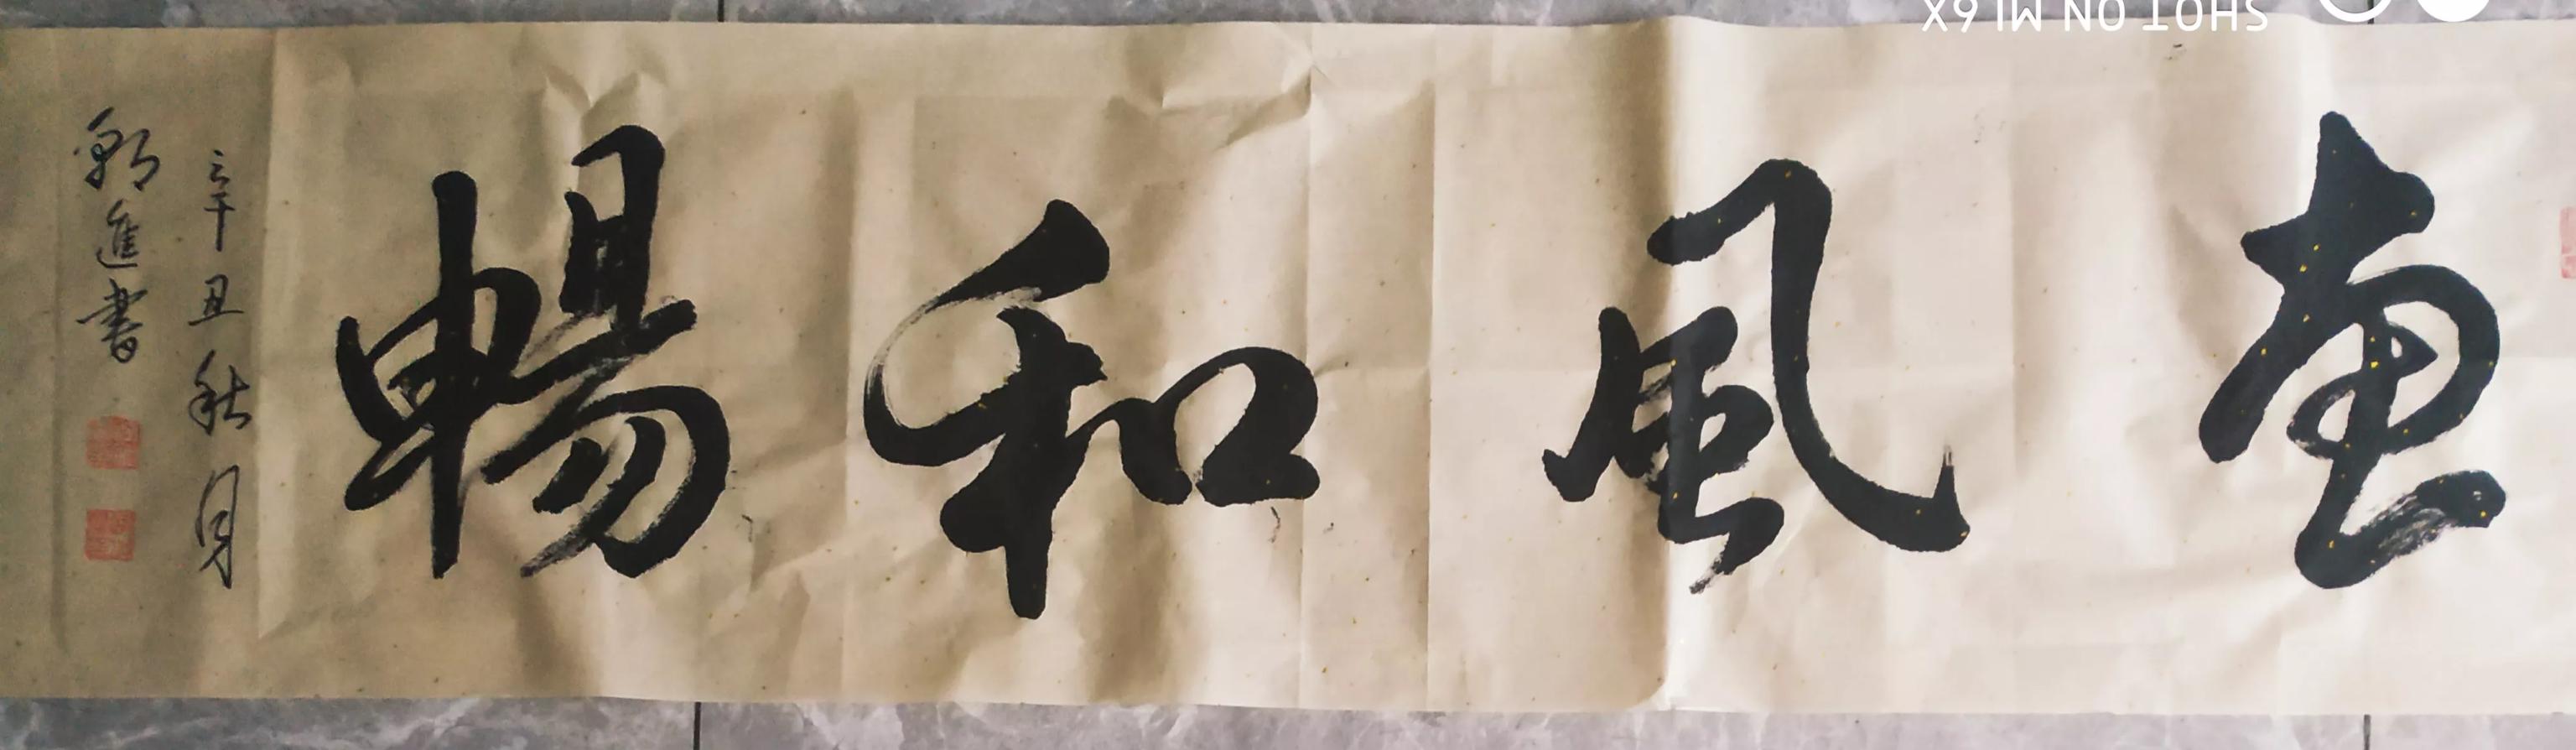 惠風和暢
辛丑秋月
進書
SHOT ON MI 6X